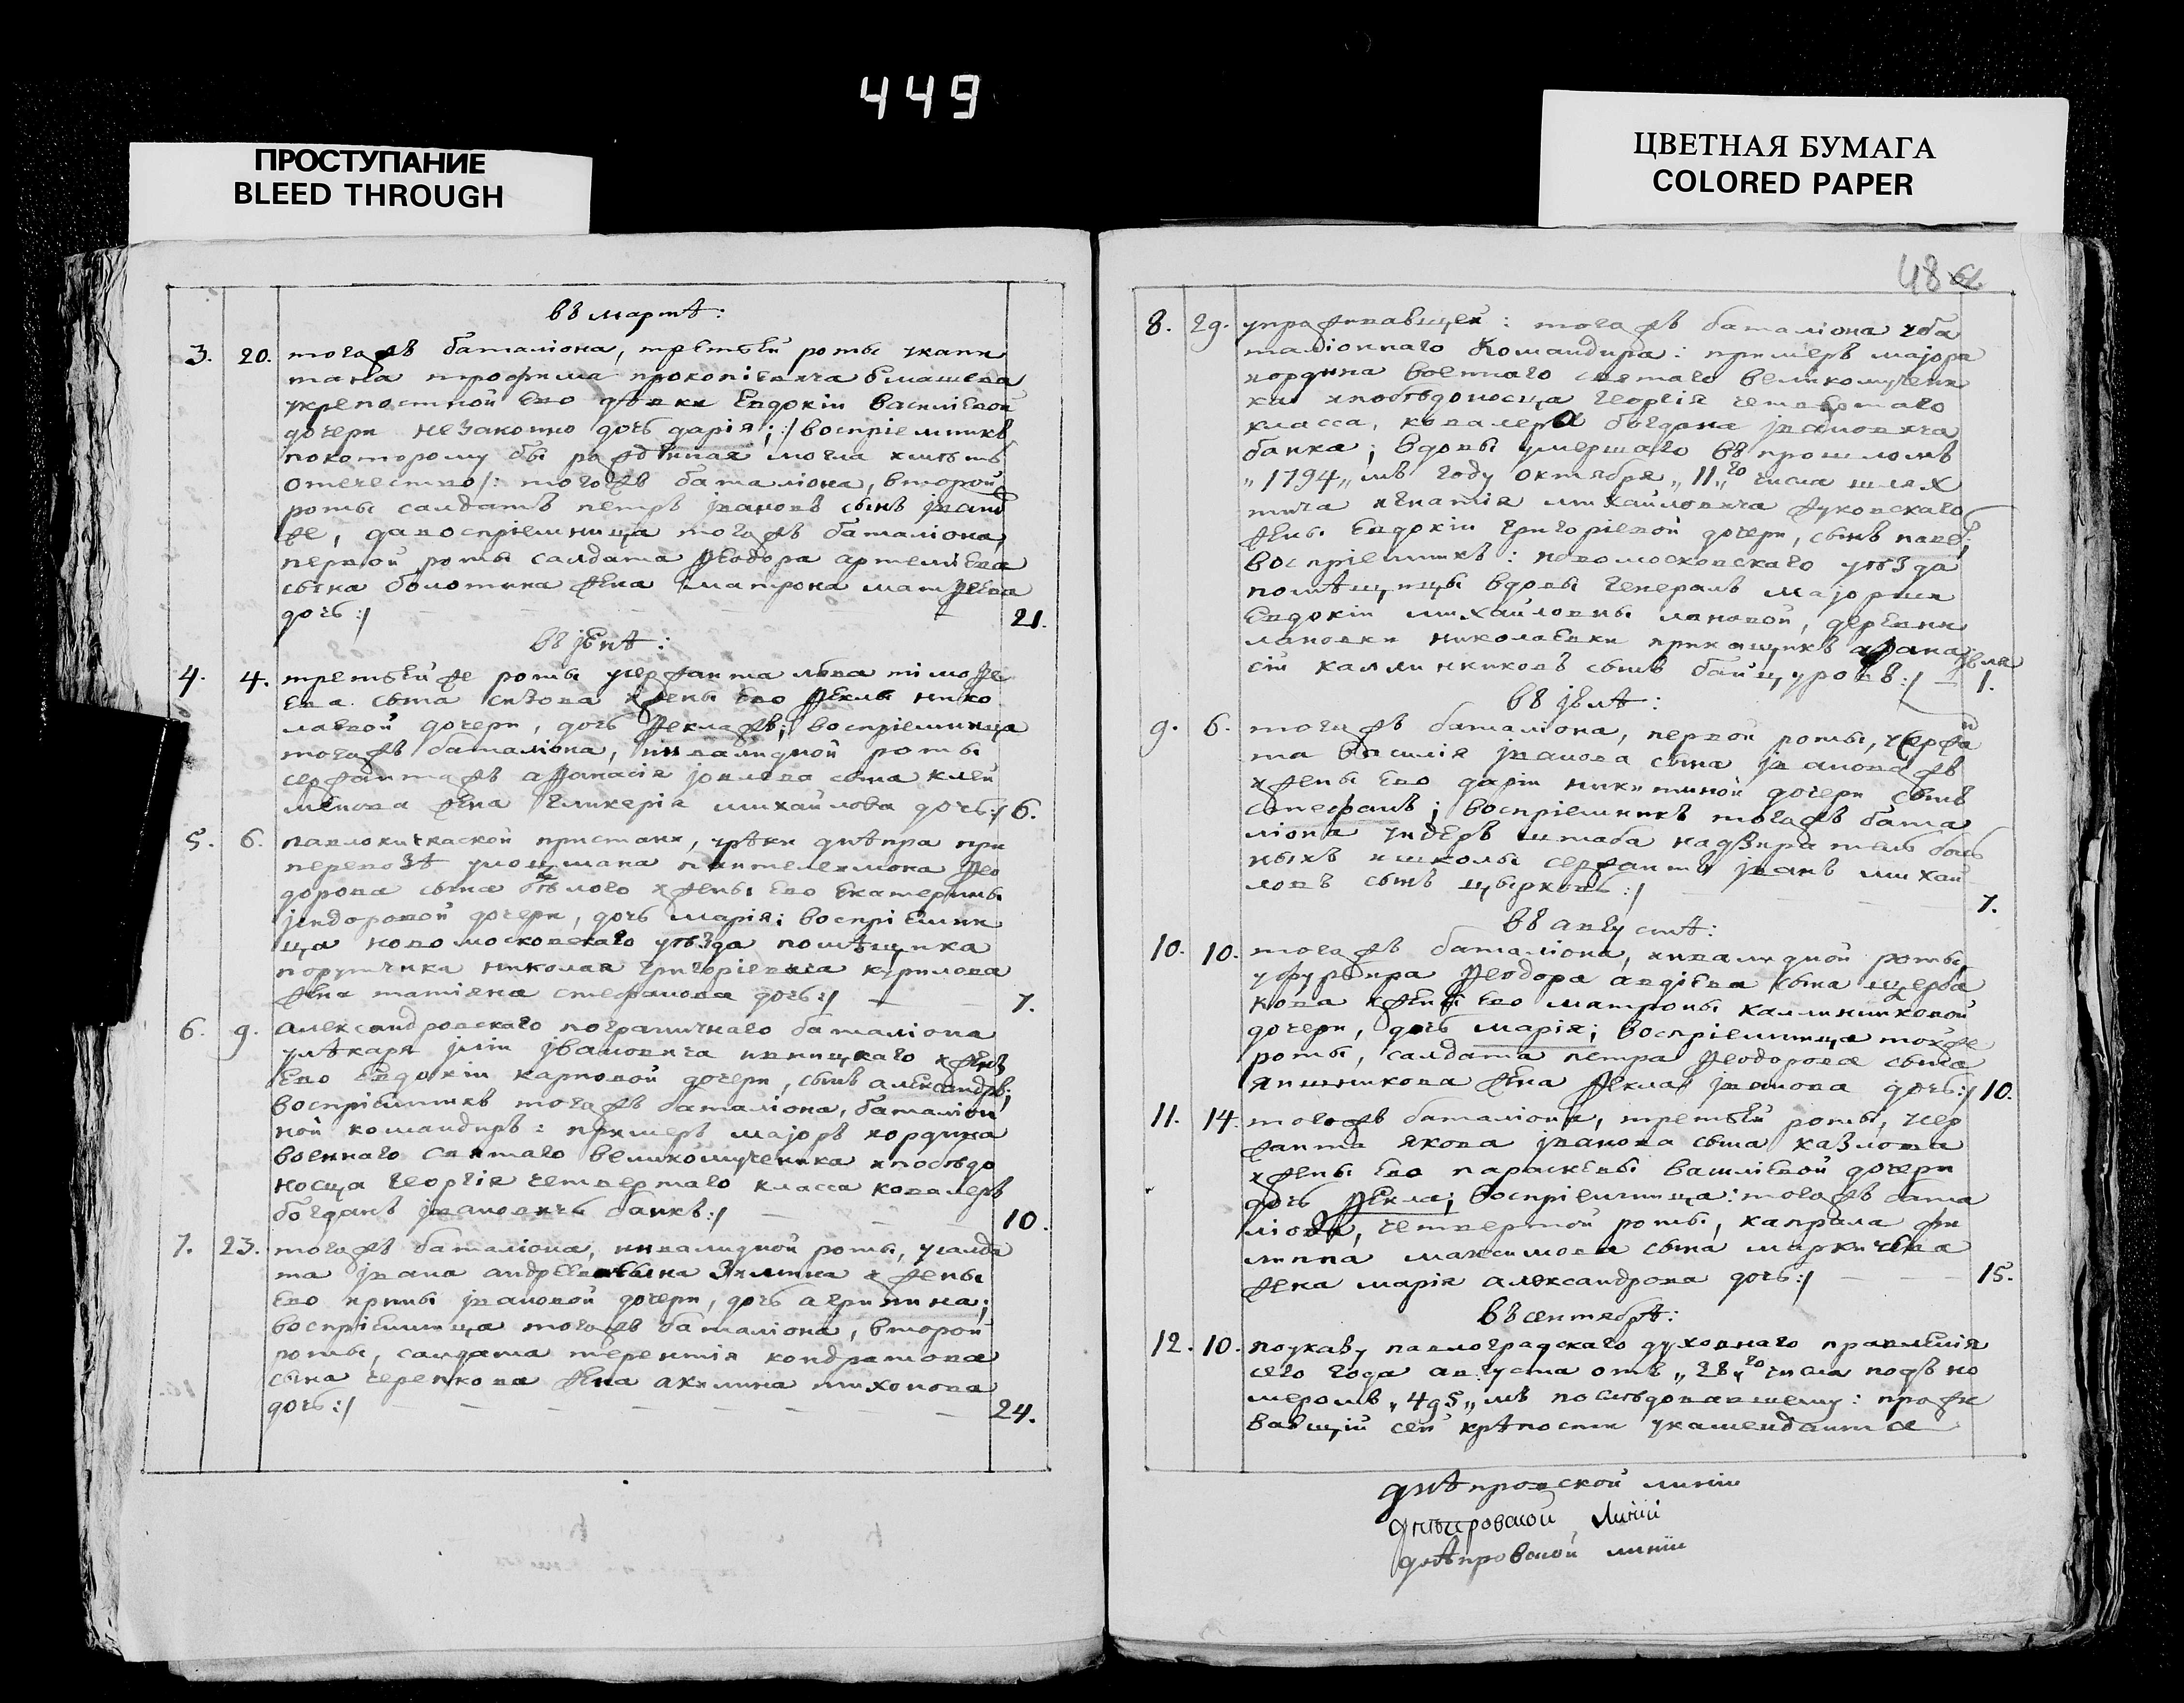 449
ПРОСТУПАНИЕ
BLEED THROUGH
ЦВЕТНАЯ БУМАГА
COLORED PAPER
48
въ мартѣ:
3. 20. тогожъ баталіона, третьей роты укапи
тана трофима прокопіевича
укрепостной ево девки Евдокіи Василіевой
дочери незаконно дочь дарія; :/ воспріемникъ
покоторому бы рожденная могла иметь
отечество /: тогожъ баталіона, второй
роты салдатъ петръ ивановъ сынъ
же, давоспріемница тогожъ баталіона,
первой роты салдата Ѳеодора артемиева
сына болотина жена матрона матѳеева
дочь :/ 21.
въ іюнѣ:
4. 4. третьей же роты усержанта льва тімоѳе
ева сына сизова ижены ево Ѳеклы нико
лаевой дочери, дочь Ѳеклажъ; воспріемница
тогожъ баталіона, инвалидной роты
сержантажъ аѲанасія іовлева сына клей
менова жена гликерія михайлова дочь :/ 6.
5. 6. павлокичкаской пристани, урѣки днѣпра при
перевозѣ улоцмана пантелеимона Ѳео
дорова сына бѣлого ижены ево Екатерины
дочери, дочь марія; воспріемни
ца новомосковского уѣзда помѣщика
порутчика николая григоріевича курилова
жена татіяна стефанова дочь :/ 7.
6. 9. александровскаго пограничнаго баталіона
улѣкаря иліи ивановича ижены
ево Евдокіи карповой дочери, сынъ александръ;
воспріемникъ тогожъ баталіона, баталіон
ной командиръ: примеръ маіоръ иордина
военнаго святаго великомученика ипобѣдо
носца георгія четвертаго класса ковалеръ
богданъ ивановичъ банкъ :/ 10.
7. 23. тогожъ баталіона, инвалидной роты, усалда
та ивана андреева сына зимина ижены
ево ирины ивановой дочери, дочь агрипина;
воспріемница тогожъ баталіона, второй
роты, салдата терентія кондратова
сына черепкова жена акилина тихонова
дочь :/ 24.
8. 29. упраживавщей: тогожъ баталіона уба
таліоннаго командира: примеръ маіора
иордина военнаго святаго великомучени
ка ипобѣдоносца георгія четвертаго
класса, ковалера богдана ивановича
банка; вдовы умершаго въ прошломъ
„1794„мъ году октября „11„го числа шлях
тича игнатія михайловича жуковскаго
жены Евдокіи григоріевой дочери, сынъ паве;
воспріемникъ: новомосковскаго уѣзда
помѣщицы вдовы генералъ маіорши
Евдокіи михайловны лановой, деревни
лановки николаевки прикащикъ аѲана
сій каллиниковъ сынъ байцуровъ :/ 1.
въ іюлѣ:
9. 6. тогожъ баталіона, первой роты, усержа
та василія иванова сына ивановажъ
ижены ево даріи никитиной дочери сынъ
стефанъ; воспріемникъ тогожъ бата
ліона ундеръ штаба надзиратель боль
ныхъ ишколы сержантъ иванъ михай
ловъ сынъ цырковъ :/ 7.
въ августѣ:
10. 10. тогожъ баталіона, инвалидной роты,
уфурьера Ѳеодора авдіева сына щерба
кова ижены ево матроны каллиниковой
дочери, дочь марія; воспріемница тойже
роты, салдата петра Ѳеодорова сына
япишникова жена Ѳекла иванова дочь :/ 10.
11. 14. тогожъ баталіона, третьей роты, усер
жанта якова иванова сына казлова
ижены ево параскевы василіевой дочери
дочь Ѳекла; воспріемница: тогожъ бата
ліона, четвертой роты, капрала фи
липпа максимова сына маркичева
жена марія александрова дочь :/ 15.
въ сентябрѣ:
12. 10. поуказу павлоградскаго духовнаго правленія
сего года августа отъ „28„го числа подъ но
меромъ „495„мъ послѣдовавшему: прожи
вавщій сей крѣпости укаменданта
днѣпровской линіи
днѣпровской линіи
днѣпровской линіи